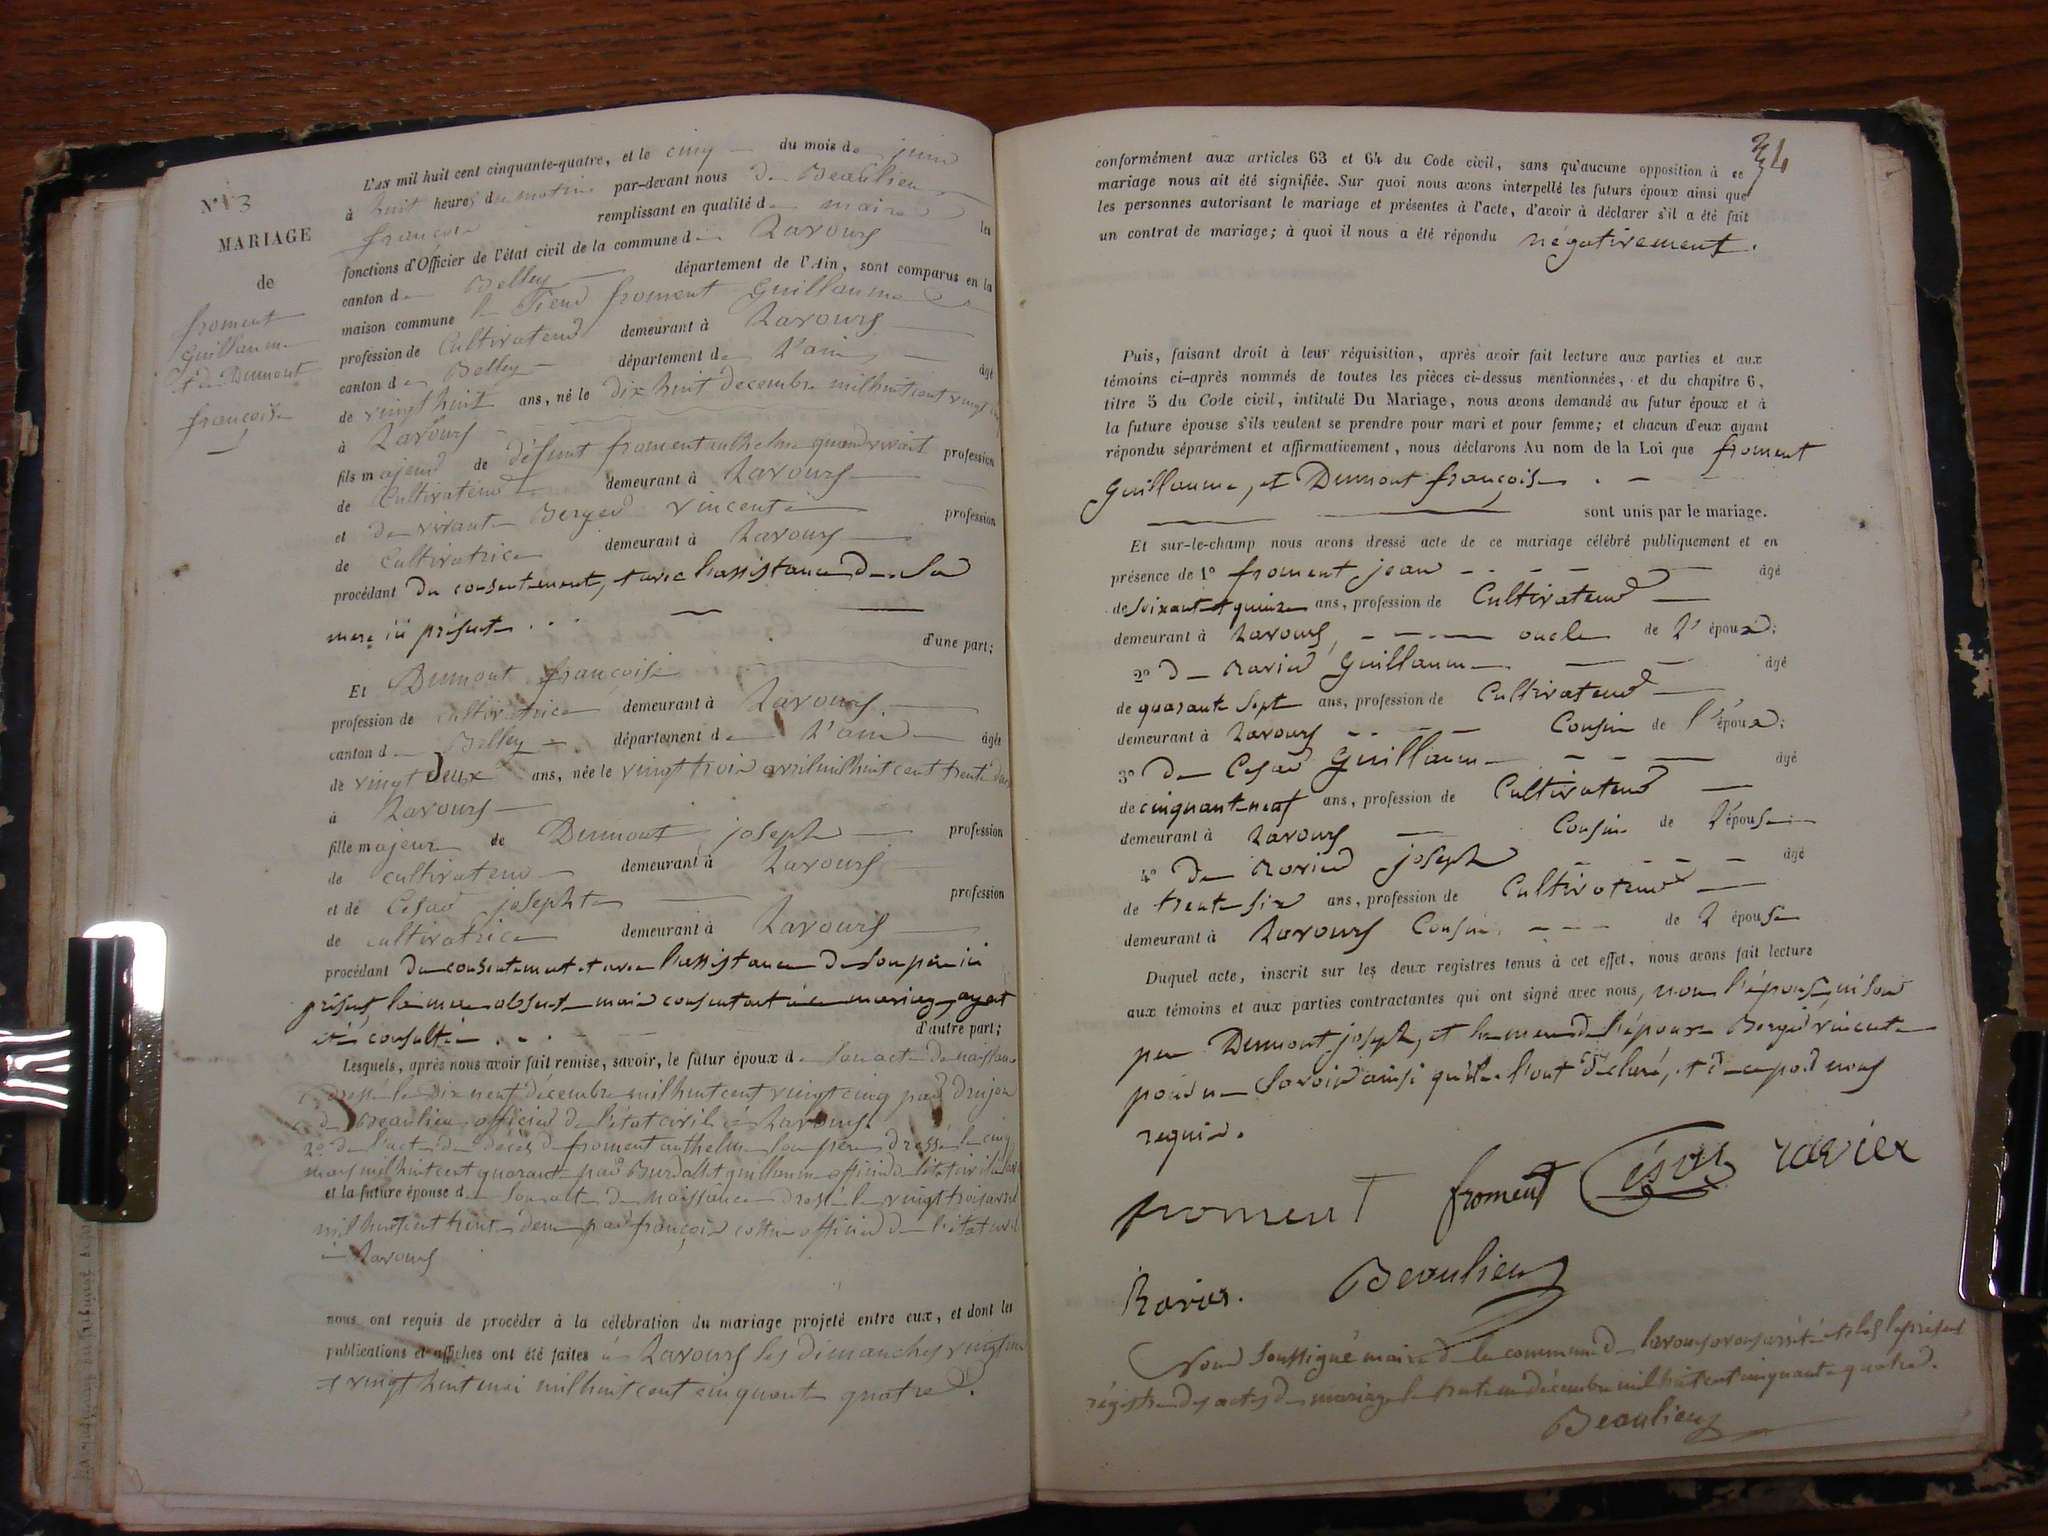 N° 3
MARIAGE
de
froment
Guillaume
et de Dumont
françoise
L'AN mil huit cent cinquante-quatre, et le cinq du mois de juin
à huit heures du matin par-devant nous De Beaulieu
françois remplissant en qualité de maire les
fonctions d'Officier de l'état civil de la commune de Lavours
canton de Belley département de l'Ain, sont comparus en la
maison commune le Sieur froment Guillaume
profession de Cultivateur demeurant à Lavours
canton de Belley département de L'ain âgé
de vingt huit ans, né le dix huit decembre mil huit cent vingt cinq
à Lavours
fils majeur de défunt froment anthelme quand vivait profession
de Cultivateur demeurant à Lavours
et de vivante Berger vincente profession
de Cultivatrice demeurant à Lavours
procédant du consentement, et avec l'assistance de sa
mere ici présente . . . d'une part;
Et Dumont françoise
profession de cultivatrice demeurant à Lavours
canton de Belley département de L'ain âgée
de vingt deux ans, née le vingt trois avril mil huit cent trente deux
à Lavours
fille majeure de Dumont joseph profession
de cultivateur demeurant à Lavours
et de Cesar josephte profession
de cultivatrice demeurant à Lavours
procédant du consentement et avec l'assistance de son père ici
présent, la mere absente mais consentant à ce mariage ayant
été consultée . . . d'autre part;
Lesquels, après nous avoir fait remise, savoir, le futur époux de son acte de naissance
dressé le dix neuf décembre mil huit cent vingt cinq par drujon
de Beaulieu officier de l'état civil à Lavours
2° de l'acte de décès de froment anthelme son père dressé le cinq
mars mil huit cent quarante par Burdallet guillaume officier de l'état civil
et la future épouse de son acte de naissance dressé le vingt trois avril
mil huit cent trente deux par françois officier de l'état civil
à Lavours
nous ont requis de procéder à la célébration du mariage projeté entre eux, et dont les
publications et affiches ont été faites à Lavours les dimanches vingt un
et vingt huit mai mil huit cent cinquante quatre.
34
conformément aux articles 63 et 64 du Code civil, sans qu'aucune opposition à ce
mariage nous ait été signifiée. Sur quoi nous avons interpellé les futurs époux ainsi que
les personnes autorisant le mariage et présentes à l'acte, d'avoir à déclarer s'il a été fait
un contrat de mariage; à quoi il nous a été répondu négativement.
Puis, faisant droit à leur réquisition, après avoir fait lecture aux parties et aux
témoins ci-après nommés de toutes les pièces ci-dessus mentionnées, et du chapitre 6,
titre 5 du Code civil, intitulé Du Mariage, nous avons demandé au futur époux et à
la future épouse s'ils veulent se prendre pour mari et pour femme; et chacun d'eux ayant
répondu séparément et affirmativement, nous déclarons Au nom de la Loi que froment
Guillaume, et Dumont françoise . -
sont unis par le mariage.
Et sur-le-champ nous avons dressé acte de ce mariage célébré publiquement et en
présence de 1° froment jean âgé
de soixante quinze ans, profession de Cultivateur
demeurant à Lavours, oncle de l'époux;
2° de Ravier Guillaume âgé
de quarante sept ans, profession de Cultivateur
demeurant à Lavours Cousin de l'époux;
3° de Cesar Guillaume âgé
de cinquante neuf ans, profession de Cultivateur
demeurant à Lavours Cousin de l'épouse
4° de Ravier joseph âgé
de trente six ans, profession de Cultivateur
demeurant à Lavours Cousin de l'épouse
Duquel acte, inscrit sur les deux registres tenus à cet effet, nous avons fait lecture
aux témoins et aux parties contractantes qui ont signé avec nous, non l'épouse, ni son
père Dumont joseph, et la mere de l'époux Berger vincente
pour ne savoir ainsi qu'ils l'ont déclaré, et de ce par nous
requis.
froment froment César ravier
Ravier. Beaulieu
Nous soussigné maire de la commune de lavours avons arrêté et clos le présent
régistre des actes de mariage le trente un décembre mil huit cent cinquante quatre.
Beaulieu